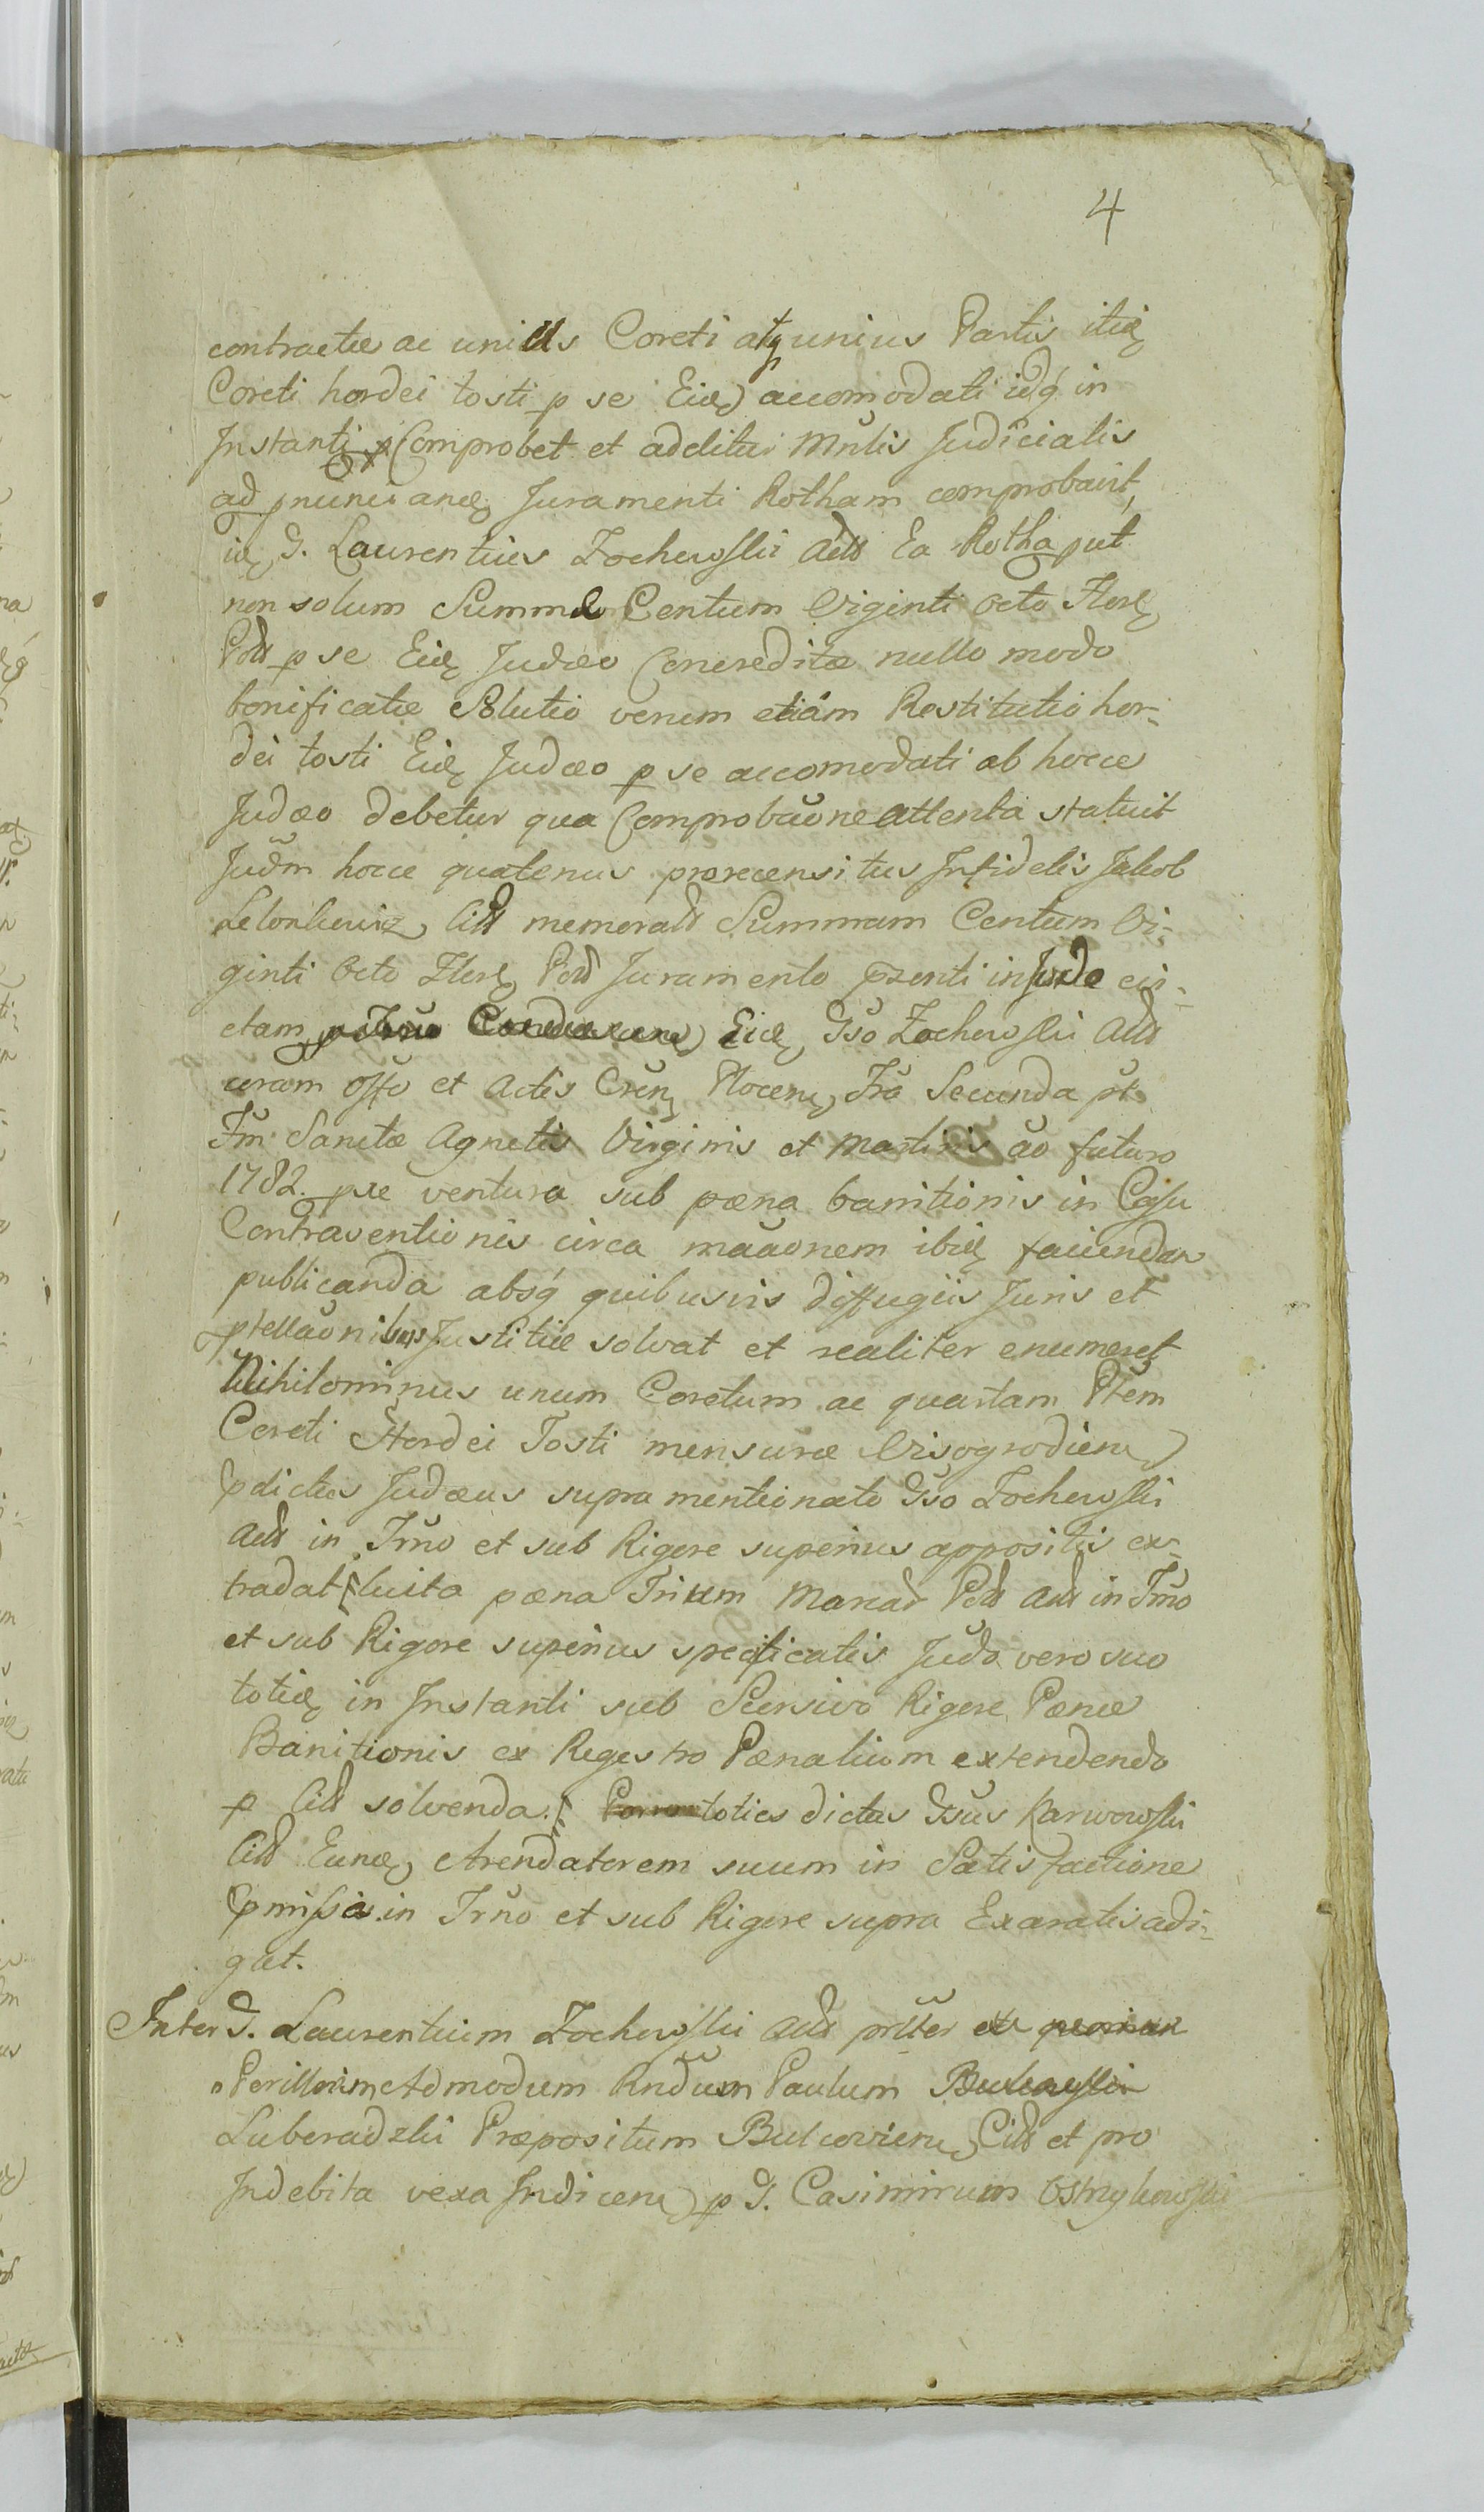 4
contractæ ac unius Coreti atq unius Partis itid
Coreti hordei tosti p se Eid accomodati idq́ in
Instanti Comprobet et additus Mnlis Judicialis
ad pnunciand Juramenti Rotham comprobavit,
id G. Laurentius Zochowski Actt Ea Rotha put
non solum Summæ Centum Viginti Octo Flor
Poll p se Eid Judæo Concreditæ nullo modo
bonificatæ Solutio verum etiám Restitutio hor-
dei tosti Eid Judæo p se accomodati ab hocce
Judæo debetur qua Comprobaone attenta statuit
Judm hocce quatenus prærecensitus Infidelis Jakob
Lelonkewicz Citt memoratt Summam Centum Vi-
ginti Octo Flor Poll Juramento pzenti in Judo evi-
ctam Eid Gso Zochowski Actt
coram Offo et Actis Cren Plocen, Fra Secunda pt
Fm Sanctæ Agnetis Virginis et Martiris ao futuro
1782. pxe ventura sub pæna banitionis in Casu
Contraventionis circa mauonem ibid faciendam
publicanda absq́ quibusvis diffugiis Juris et
ptellaonibus Justitiæ solvat et realiter enumeret
Nihilominus unum Coretum ac quartam Ptem
Coreti Hordei Tosti mensuræ Visogrodien
pdictus Judæus supra mentionato Gso Zochowski
Actt in Trno et sub Rigore superius appositis ex-
tradat luita pæna Trium Marcar Poll Actt in Trno
et sub Rigore superius specificatis Judo vero suo
totid in Instanti sub Scersivo Rigore Pænæ
Banitionis ex Regestro Pænalium extendendo
p Citt solvenda. toties dictus Gsus Karwowski
Citt Eund Arendatorem suum in Satisfactione
pmissa in Trno et sub Rigore supra Exaratis adi-
gat.
Inter G. Laurentium Zochowski Actt
Perillrem Admodum Rndum Paulum
Luberadzki Præpositum Bulcovien, Citt et pro
Indebita vexa Indicen p G. Casimirum Ostrykowski